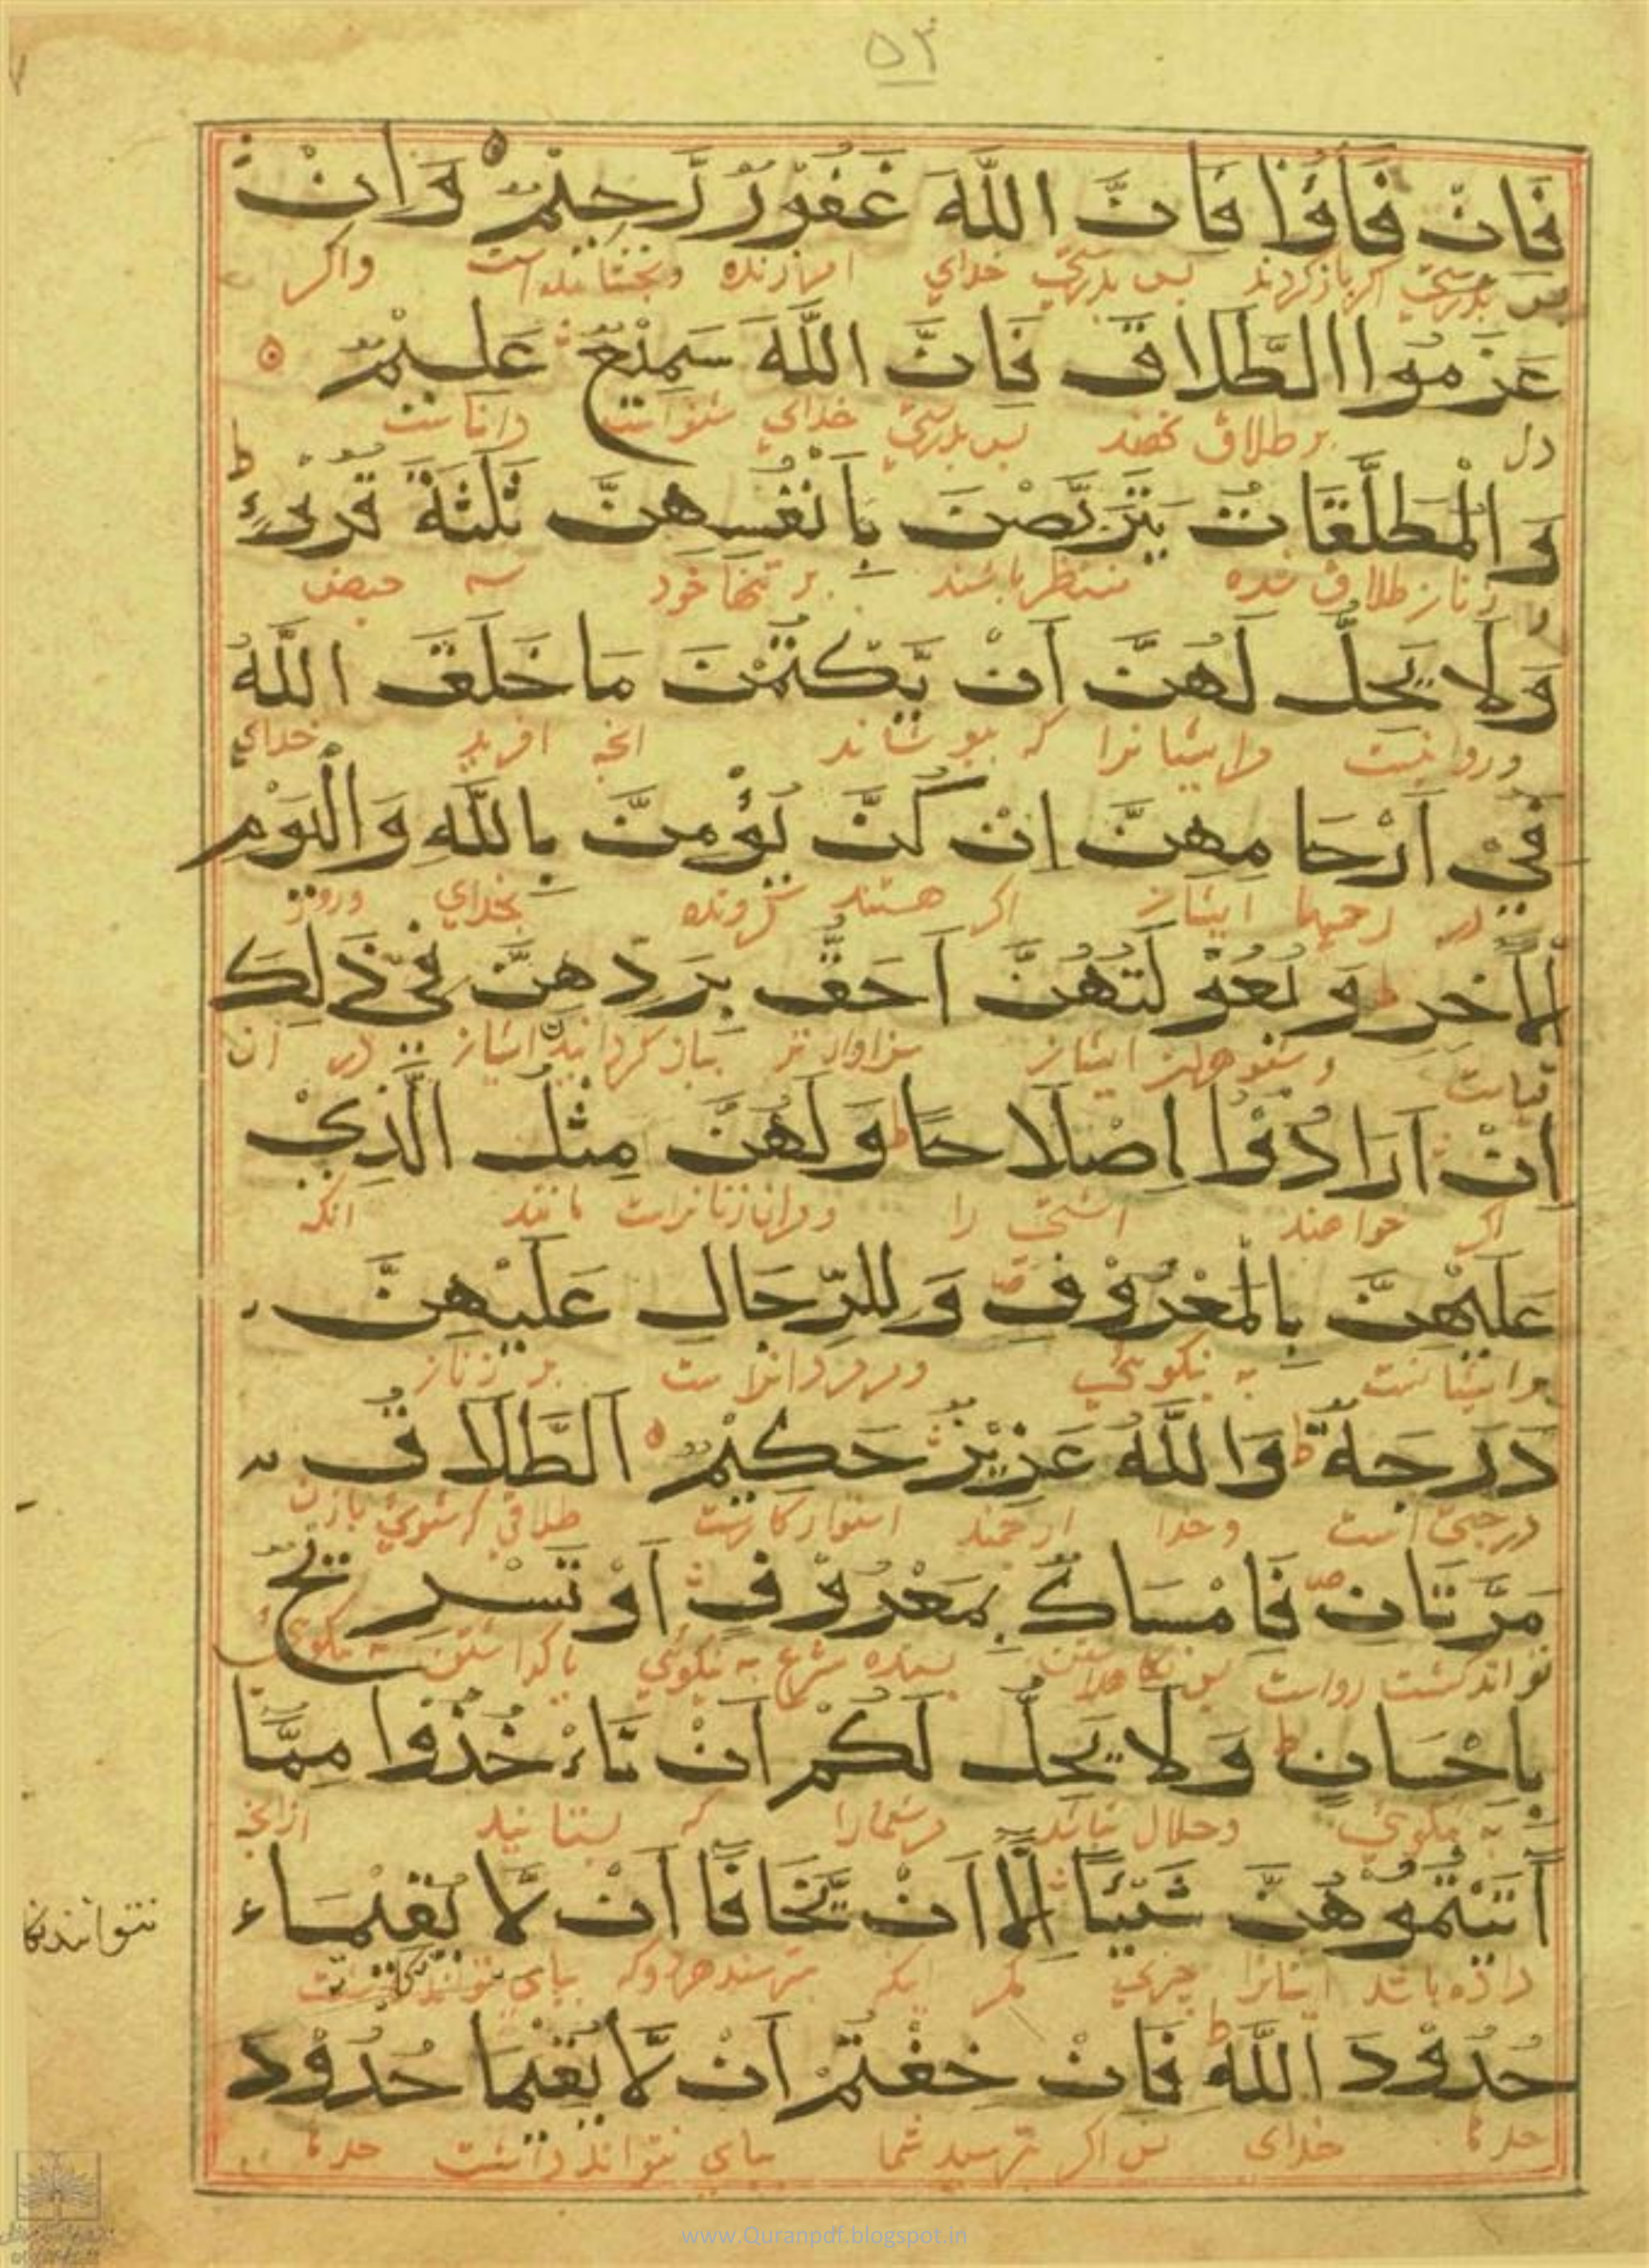 ۵۳
فَانْ فَآؤُا فَانَّ اللّٰهَ غَفُوْرٌ رَّحِيْمٌ وَانْ
پس بدرستی اگر بازگردند پس بدرستی خدای امرزنده وبخشاینده است واگر
عَزَمُوا الطَّلَاقَ فَانَّ اللّٰهَ سَمِيْعٌ عَلِيْمٌ
دل بر طلاق نهند پس بدرستی خدای شنواست داناست
وَالْمُطَلَّقَاتُ يَتَرَبَّصْنَ بِاَنْفُسِهِنَّ ثَلٰثَةَ قُرُوْءٍ
زنان طلاق شده منتظر باشند بر تنها خود سه حیض
وَلَا يَحِلُّ لَهُنَّ اَنْ يَّكْتُمْنَ مَا خَلَقَ اللّٰهُ
وروا نیست مرایشانرا که بپوشانند انچه افرید خدای
فِيْ اَرْحَامِهِنَّ اِنْ كُنَّ يُؤْمِنَّ بِاللّٰهِ وَالْيَوْمِ
در رحمها ایشان اگر هستند گرونده بخدای وروز
الْاٰخِرِ ط وَبُعُوْلَتُهُنَّ اَحَقُّ بِرَدِّهِنَّ فِيْ ذٰلِكَ
قیامت وشوهران ایشان سزاوارتر بباز گردانیدن ایشان در ان
اِنْ اَرَادُوْا اِصْلَاحًا ط وَلَهُنَّ مِثْلُ الَّذِيْ
اگر خواهند اشتی را ومرانزنانراست مانند انکه
عَلَيْهِنَّ بِالْمَعْرُوْفِ ص وَلِلرِّجَالِ عَلَيْهِنَّ
برایشانست به نیکوئی ومرمردانراست بر زنان
دَرَجَةٌ ط وَاللّٰهُ عَزِيْزٌ حَكِيْمٌ اَلطَّلَاقُ
درجتی است وخدا ارجمند استوارکارست طلاقی که شوی بازن
مَرَّتَانِ ص فَاِمْسَاكٌ بِمَعْرُوْفٍ اَوْ تَسْرِيْحٌ
تواند گشت رواست پس نگاهداشتن پسندیده شرع به نیکوئی یا گذاشتن به نیکوئی
بِاِحْسَانٍ ط وَلَا يَحِلُّ لَكُمْ اَنْ تَاْخُذُوا مِمَّا
به نیکوئی وحلال نباشد مرشمارا که بستانید ازانچه
اٰتَيْتُمُوْهُنَّ شَيْئًا اِلَّا اَنْ يَّخَافَا اَنْ لَّا يُقِيْمَا
داده باشد ایشانرا چیزی مگر اینکه بترسند هردو که بپای نتوانند داشت
نتوانند
حُدُوْدَ اللّٰهِ ط فَانْ خِفْتُمْ اَنْ لَّا يُقِيْمَا حُدُوْدَ
حدها خدای پس اگر بترسید شما بپای نتوانند داشت حدها
www.Quranpdf.blogspot.in